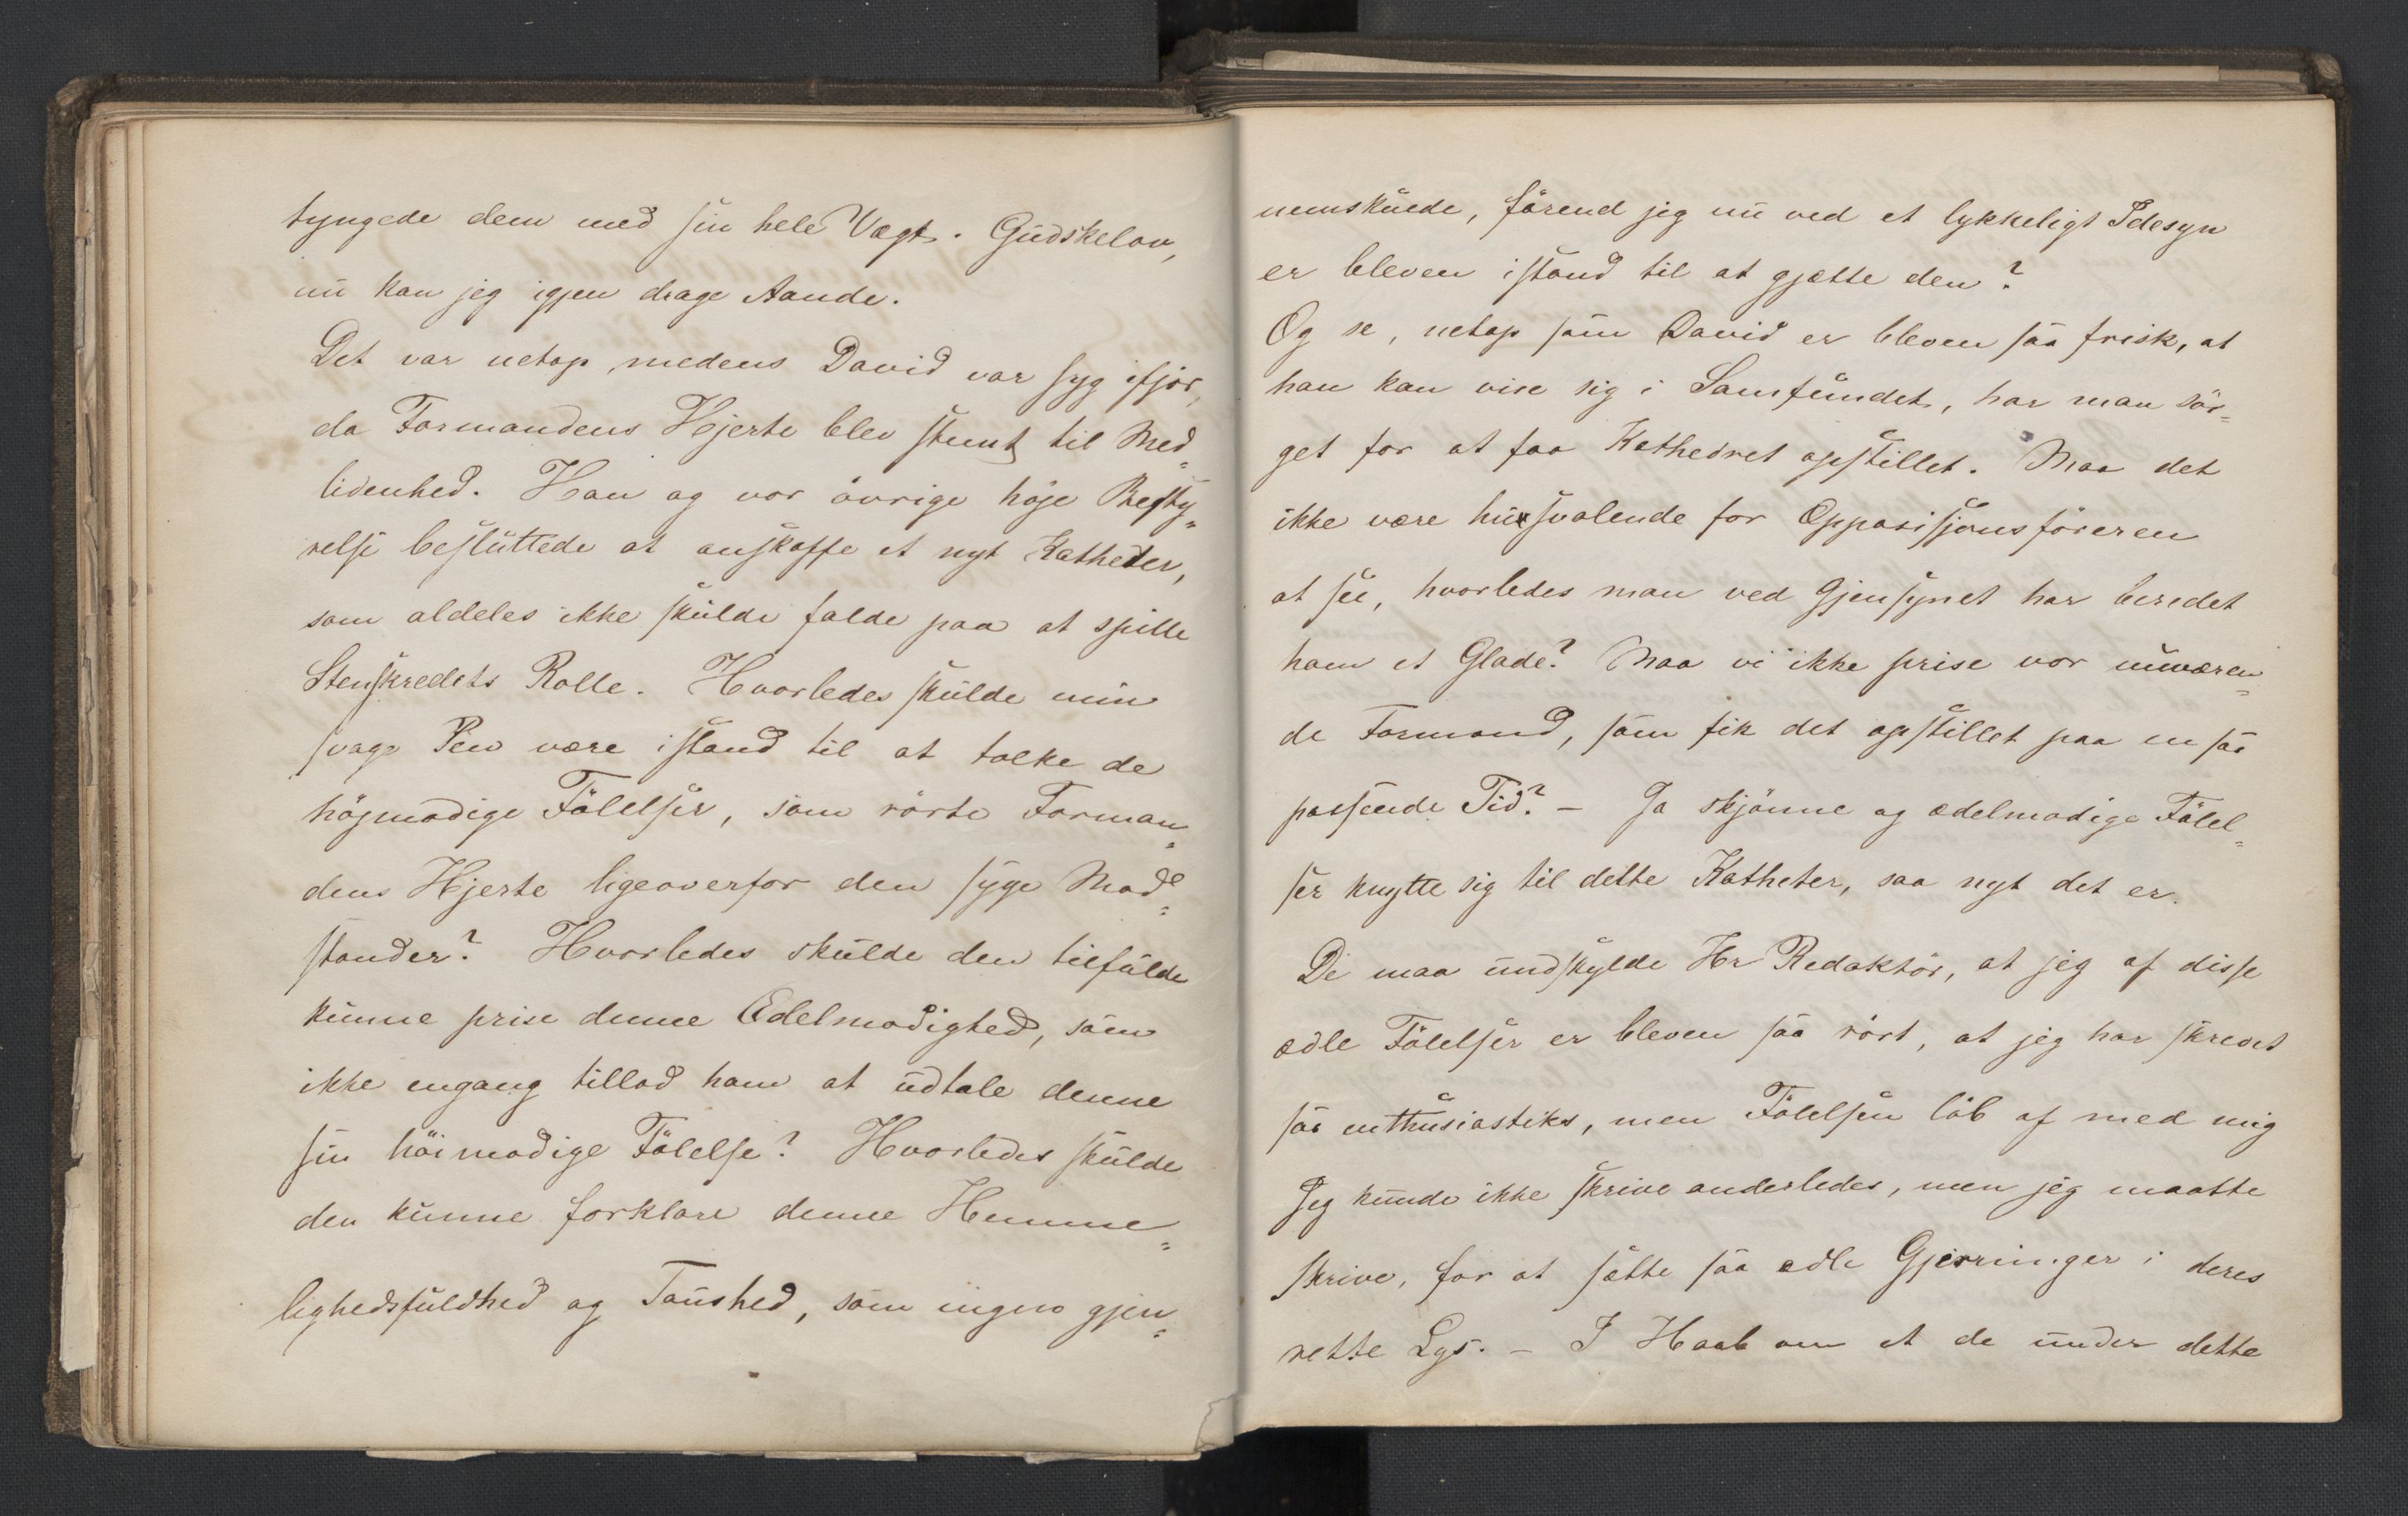 tyngede dem med sin hele Vægt. Gudskelov,
nu kan jeg igjen drage Aande.
Det var netop medens David var syg ifjor,
da Formandens Hjerte blev stemt til Med=
lidenhed. Han og vor övrige höje Besty=
relse besluttede at anskaffe et nyt Katheder,
som aldeles ikke skulde falde paa at spille
Stenskredets Rolle. Hvorledes skulde min
svage Pen være istand til at tolke de
höjmodige Fölelser, som rörte Forman=
dens Hjerte ligeoverfor den syge Mod=
stander? Hvorledes skulde den tilfulde
kunne prise denne Ædelmodighed, som
ikke engang tillod ham at udtale denne
sin höimodige Fölelse? Hvorledes skulde
den kunne forklare denne Hemme=
lighedsfuldhed og Taushed, som ingen gjen=
nemskuede, förend jeg nu ved et lykkeligt Idesyn
er bleven istand til at gjætte den?
Og se, netop som David er bleven saa frisk, at
han kan vise sig i Samfundet, har man sör=
get for at faa Kathedret opstillet. Maa det
ikke være husvalende for Opposisjonsföreren
at see, hvorledes man ved Gjensynet har beredet
ham et Glæde? Maa vi ikke prise vor nuværen=
de Formand, som fik det opstillet paa en saa
passende Tid? – Ja skjönne og ædelmodige Fölel=
ser knytte sig til dette Katheter, saa nyt det er.
De maa undskylde Hr Redaktör, at jeg af disse
ædle Fölelser er bleven saa rört, at jeg har skrevet
saa enthusiastiks, men Fölelsen löb af med mig
Jeg kunde ikke skrive anderledes, men jeg maatte
skrive, for at sætte saa ædle Gjerninger i deres
rette Lys. – I Haab om at de under dette